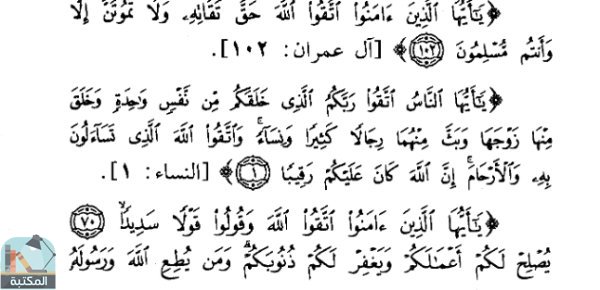 ﴿يَٰٓأَيُّهَا ٱلَّذِينَ ءَامَنُوا۟ ٱتَّقُوا۟ ٱللَّهَ حَقَّ تُقَاتِهِۦ وَلَا تَمُوتُنَّ إِلَّا
وَأَنتُم مُّسْلِمُونَ ١٠٢﴾ [آل عمران: ١٠٢].
﴿يَٰٓأَيُّهَا ٱلنَّاسُ ٱتَّقُوا۟ رَبَّكُمُ ٱلَّذِى خَلَقَكُم مِّن نَّفْسٍ وَٰحِدَةٍ وَخَلَقَ
مِنْهَا زَوْجَهَا وَبَثَّ مِنْهُمَا رِجَالًا كَثِيرًا وَنِسَآءً ۚ وَٱتَّقُوا۟ ٱللَّهَ ٱلَّذِى تَسَآءَلُونَ
بِهِۦ وَٱلْأَرْحَامَ ۚ إِنَّ ٱللَّهَ كَانَ عَلَيْكُمْ رَقِيبًا ١﴾ [النساء: ١].
﴿يَٰٓأَيُّهَا ٱلَّذِينَ ءَامَنُوا۟ ٱتَّقُوا۟ ٱللَّهَ وَقُولُوا۟ قَوْلًا سَدِيدًا ٧٠
يُصْلِحْ لَكُمْ أَعْمَٰلَكُمْ وَيَغْفِرْ لَكُمْ ذُنُوبَكُمْ ۗ وَمَن يُطِعِ ٱللَّهَ وَرَسُولَهُۥ
المكتبة